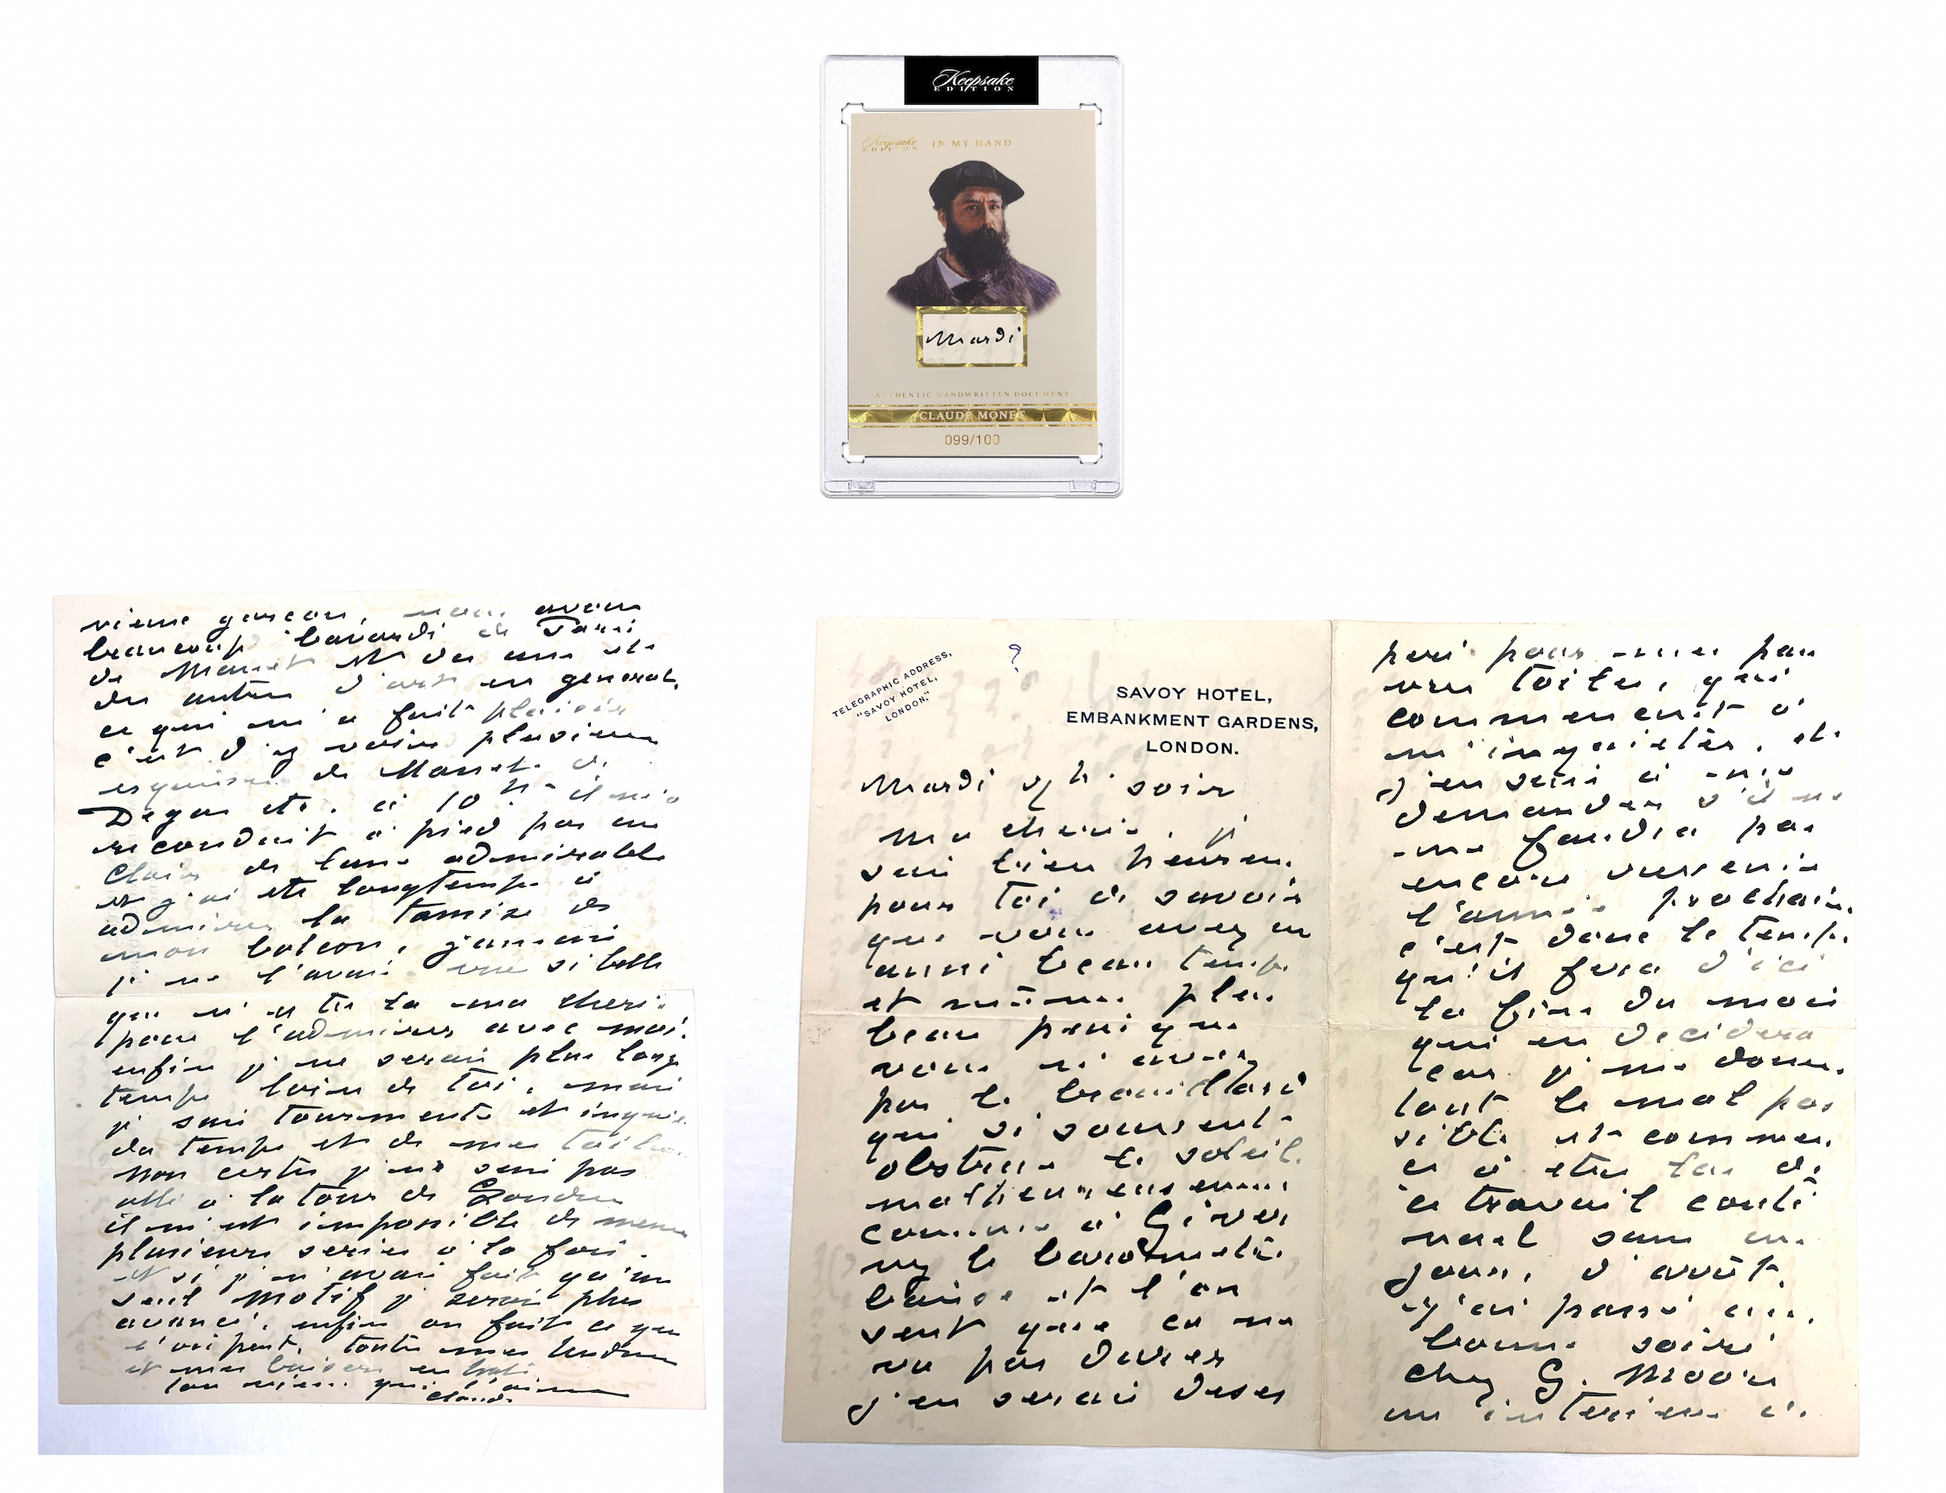 Keepsake
EDITION
Keepsake
EDITION
IN MY HAND
Mardi
AUTHENTIC HANDWRITTEN DOCUMENT
CLAUDE MONET
099/100
TELEGRAPHIC ADDRESS,
"SAVOY HOTEL,
LONDON."
?
SAVOY HOTEL,
EMBANKMENT GARDENS,
LONDON.
Mardi 7h. soir
Ma cherie, je
suis bien heureux
pour toi de savoir
que vous avez un
aussi beau temps
et même plus
beau puisque
vous n'avez
pas le brouillard
qui si souvent
obstrue le soleil.
malheureusement
comme à Giverny
le baromètre
baisse et l'on
sent que ça ne
va pas durer
j'en serai déses
péré pour mes pau
vres toiles, qui
commencent à
m'inquiéter, et
j'en suis à me
demander s'il ne
me faudra pas
encore revenir
l'année prochaine.
c'est donc le temps
qu'il fera d'ici
la fin du mois
qui en décidera
car je me donne
tout le mal pos
sible et commen
ce à être las de
ce travail conti
nuel sans un
jour d'arrêt.
J'ai passé une
bonne soirée
chez G. Moore
un intérieur de
vieux garçon, nous avons
beaucoup bavardé de Paris
de Manet et des uns et
des autres d'art en général,
ce qui m'a fait plaisir
c'est d'y voir plusieurs
esquisses de Manet, de
Degas etc. à 10 h. il m'a
reconduit à pied par un
clair de lune admirable
et j'ai été longtemps à
admirer la Tamise de
mon balcon, jamais
je ne l'avais vue si belle
que n'es tu là ma cherie
pour l'admirer avec moi.
enfin je ne serai plus long
temps loin de toi, mais
je suis tourmenté et inquiet
du temps et de mes toiles.
Non certes je ne suis pas
allé à la tour de Londres
il m'est impossible de mener
plusieurs series à la fois.
et si je n'avais fait qu'un
seul motif je serais plus
avancé, enfin on fait ce que
l'on peut. toutes mes tendresses
et mes baisers
ton vieux qui t'aime
Claude